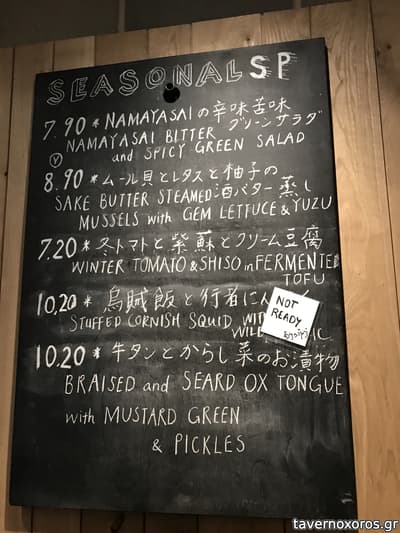 SEASONAL SP
7.90 * NAMAYASAIの辛味苦味
グリーンサラダ
NAMAYASAI BITTER
Ⓥ and SPICY GREEN SALAD
8.90 * ムール貝とレタスと柚子の
酒バター蒸し
SAKE BUTTER STEAMED
MUSSELS with GEM LETTUCE & YUZU
7.20 * 冬トマトと紫蘇とクリーム豆腐
WINTER TOMATO & SHISO in FERMENTED
TOFU
10.20 * 烏賊飯と行者にん
STUFFED CORNISH SQUID
WILD
NOT
READY
10.20 * 牛タンとからし菜のお漬物
BRAISED and SEARD OX TONGUE
with MUSTARD GREEN
& PICKLES
tavernoxoros.gr